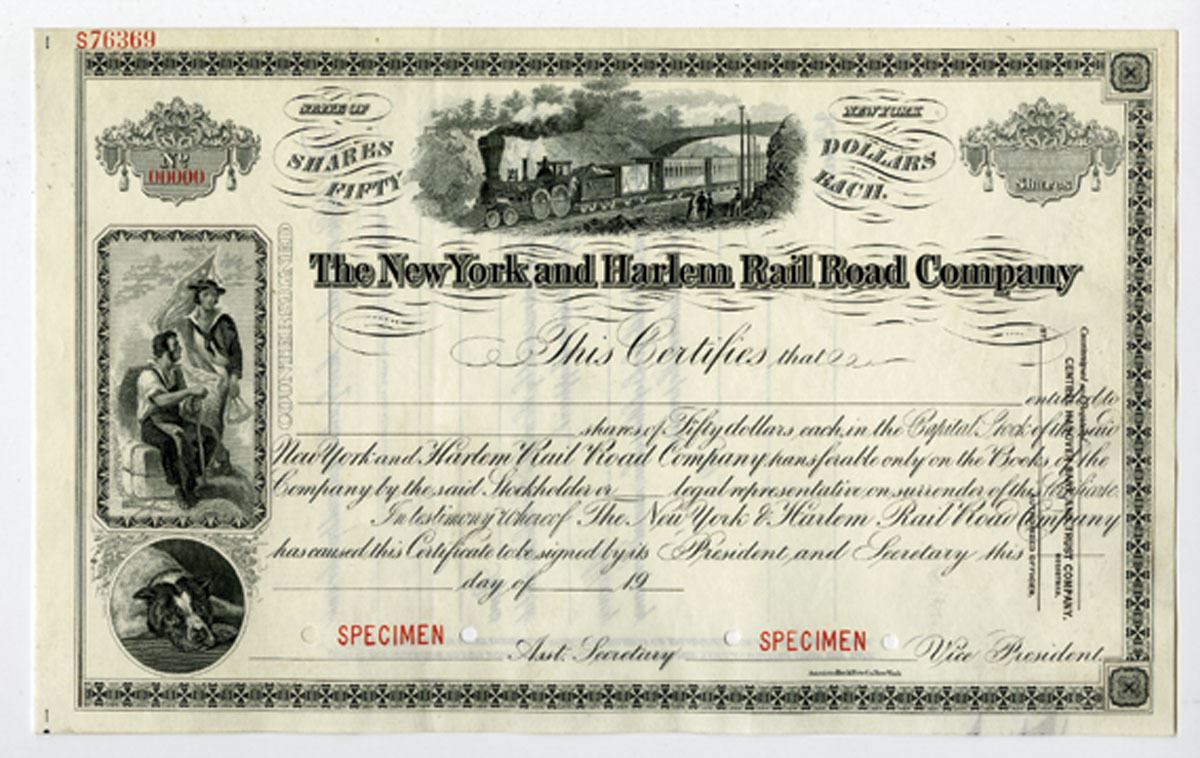 S76369
STATE OF NEW YORK
SHARES FIFTY DOLLARS EACH.
No 00000
Shares
COUNTERSIGNED
The New York and Harlem Rail Road Company
This Certifies that
entitled to
shares of Fifty dollars each, in the Capital Stock of the said
New York and Harlem Rail Road Company transferable only on the Books of the
Company by the said Stockholder or legal representative on surrender of this Certificate.
In testimony Whereof The New York & Harlem Rail Road Company
has caused this Certificate to be signed by its President, and Secretary this
day of 19
SPECIMEN
SPECIMEN
Asst. Secretary
Vice President
American Bank Note Co. New York
Countersigned and Registered
CENTRAL HANOVER BANK AND TRUST COMPANY,
REGISTRAR.
BY
AUTHORIZED OFFICER.